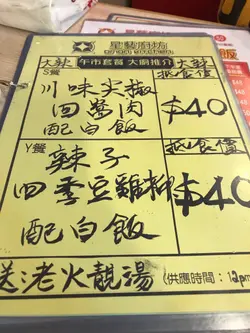 星藝廚坊
大辣 午市套餐 大廚推介 大辣
S餐 抵食價
川味尖椒
回鍋肉 $40
配白飯
Y餐 抵食價
辣子
四季豆雞柳 $40
配白飯
送老火靚湯 (供應時間：12pm